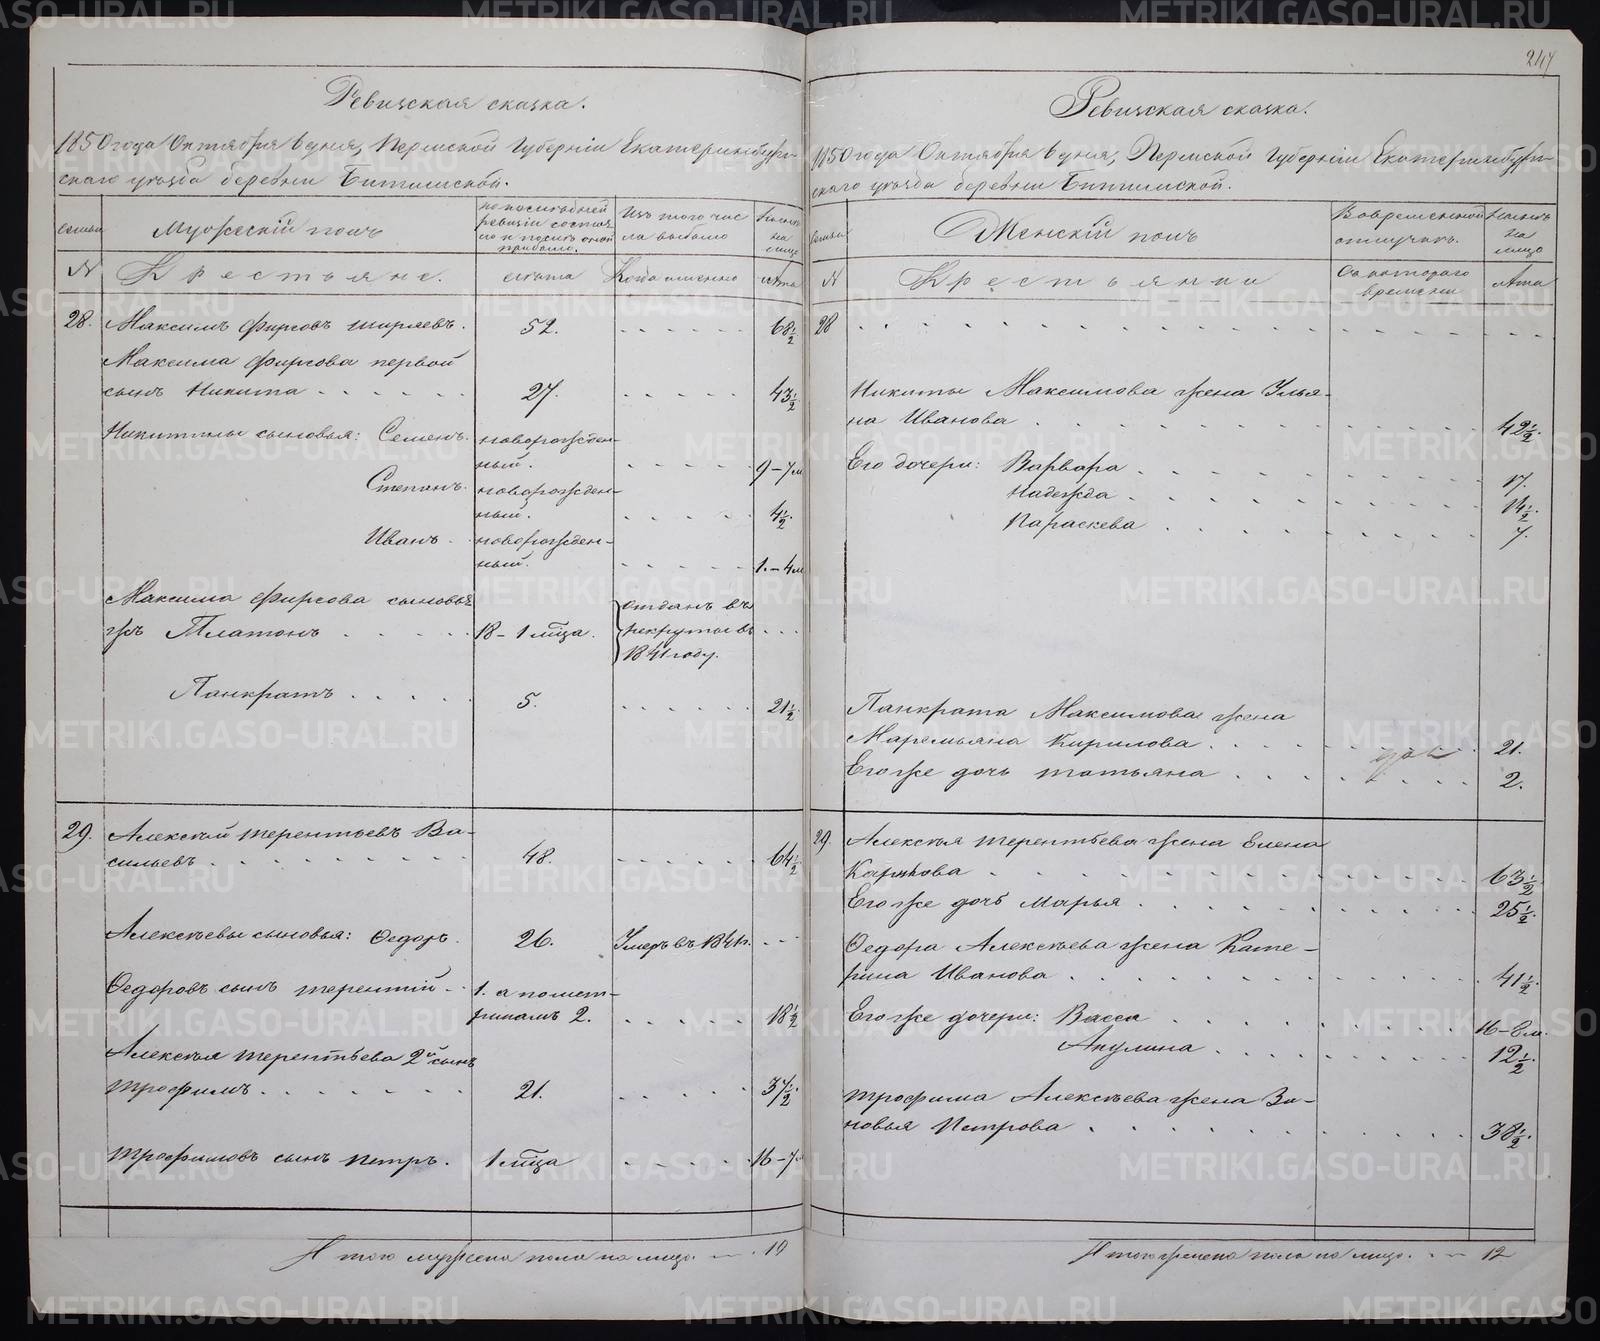 247
Ревизская сказка.
1850 года Октября 6 дня, Пермской Губернiи Екатеринбург-
скаго уѣзда деревни Битимской.
семьи
Мужескiй полъ
по послѣдней ревизiи состояло и послѣ оной прибыло.
Изъ того числа выбыло
Нынѣ на лицо
№
Крестьяне.
лѣта
Когда именно
Лѣта
28. Максимъ Фирсовъ Ширяевъ. 52. 68½
Максима Фирсова первой
сынъ Никита 27. 43½
Никитины сыновья: Семенъ. новорожден-
ный. 9-7 м
Степанъ. новорожден-
ный. 4½.
Иванъ. новорожден-
ный. 1.-4 м
Максима Фирсова сыновья отданъ въ
жъ Платонъ 18-1 мѣца. рекруты въ
1841 году.
Панкратъ 5. 21½
29. Алексѣй Терентьевъ Ва-
сильевъ 48. 64½
Алексѣевы сыновья: Ѳедоръ. 26. Умеръ въ 1841 г.
Ѳедоровъ сынъ Терентiй 1. а по мет-
рикамъ 2. 18½
Алексѣя Терентьева 2й сынъ
Трофимъ 21. 37½.
Трофимовъ сынъ Петръ. 1 мѣца 16-7 м
Итого мужеска пола на лицо. 10
Ревизская сказка.
1850 года Октября 6 дня, Пермской Губернiи Екатеринбург-
скаго уѣзда деревни Битимской.
семьи
Женскiй полъ
Во временной отлучкѣ.
Нынѣ на лицо
№
Крестьянки
Съ котораго времени
Лѣта
28
Никиты Максимова жена Улья-
на Иванова 42½.
Его дочери: Варвара 17.
Надежда 14½.
Параскева 7.
Панкрата Максимова жена
Маремьяна Кирилова 21.
Его же дочь Татьяна 2.
29. Алексѣя Терентьева жена Елена
Карпова 63½
Его же дочь Марья 25½.
Ѳедора Алексѣева жена Кате-
рина Иванова 41½.
Его же дочери: Васса 16-8 м.
Акулина 12½.
Трофима Алексѣева жена Зи-
новья Петрова 38½.
Итого женска пола на лицо. 12
METRIKI.GASO-URAL.RU